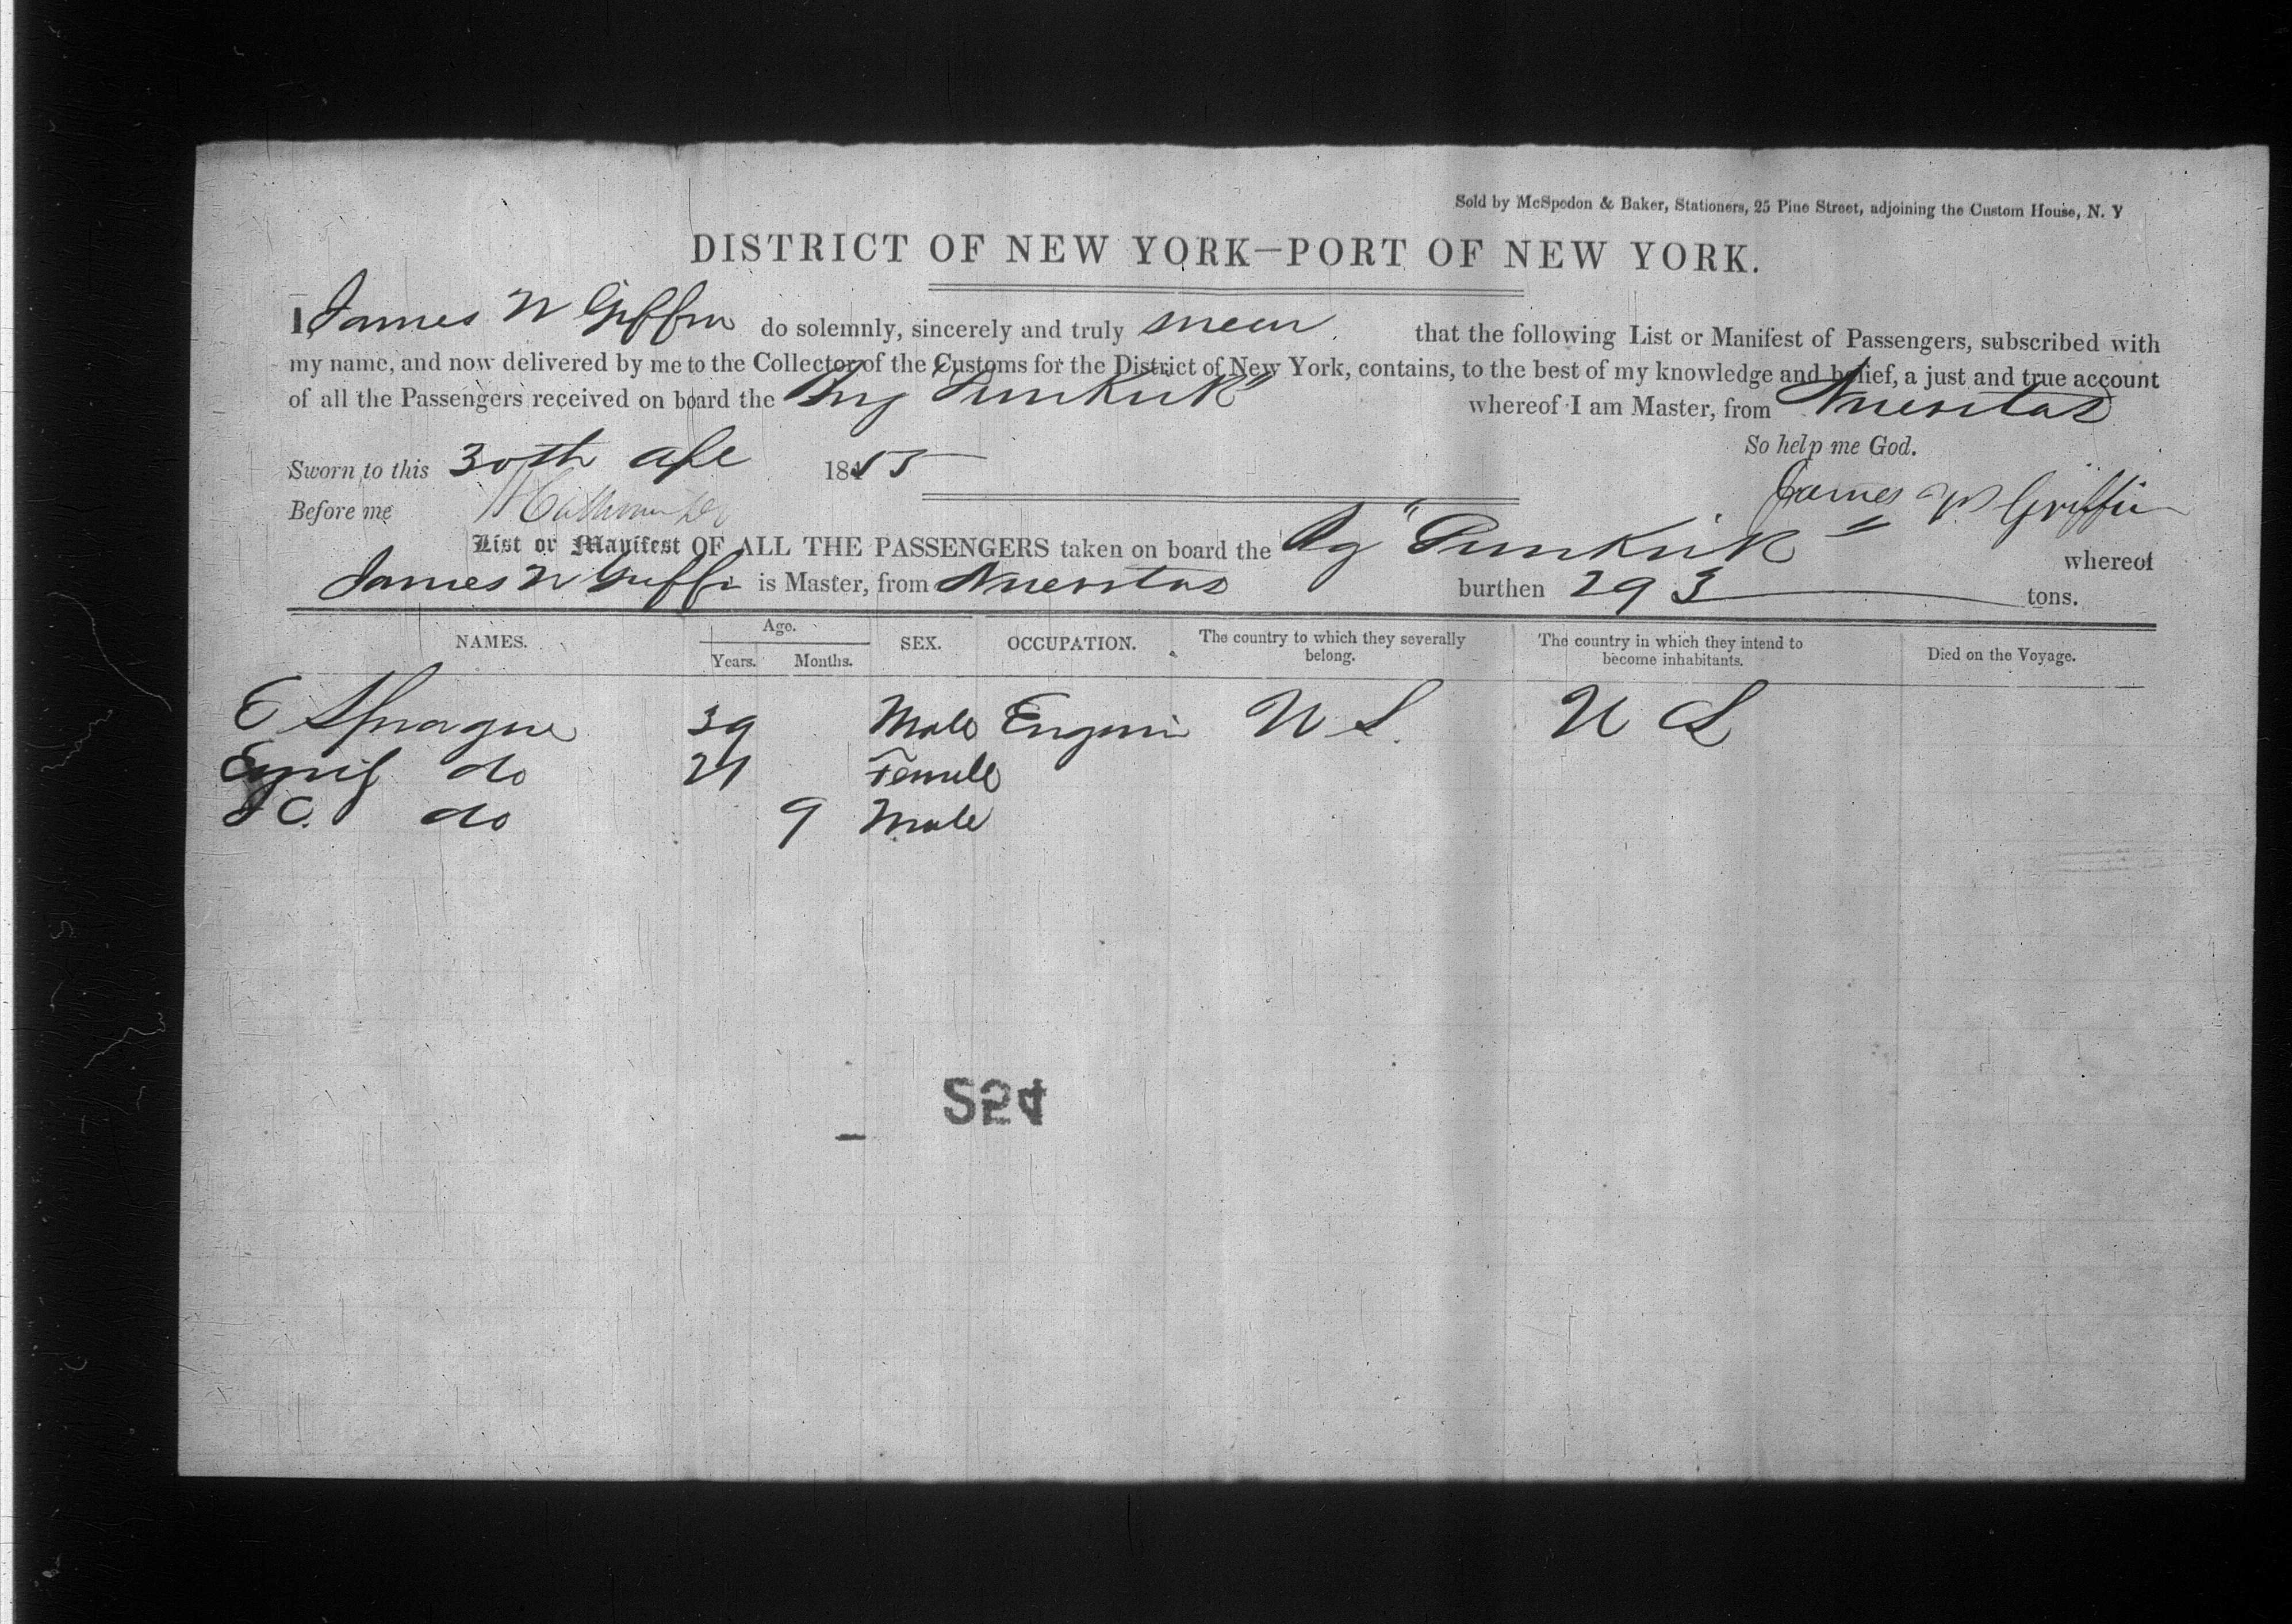 Sold by McSpedon & Baker, Stationers, 25 Pine Street, adjoining the Custom House, N. Y
DISTRICT OF NEW YORK—PORT OF NEW YORK.
I, James W Griffin do solemnly, sincerely and truly swear that the following List or Manifest of Passengers, subscribed with
my name, and now delivered by me to the Collector of the Customs for the District of New York, contains, to the best of my knowledge and belief, a just and true account
of all the Passengers received on board the Brig "Dunkirk" whereof I am Master, from Nuevitas
So help me God.
Sworn to this 30th 1855
James W Griffin
Before me
List or Manifest OF ALL THE PASSENGERS taken on board the Bg "Dunkirk" whereof
James W Griffin is Master, from Nuevitas burthen 293 tons.
NAMES. Age. Years. Months. SEX. OCCUPATION. The country to which they severally belong. The country in which they intend to become inhabitants. Died on the Voyage.
E Sprague 39 Male U S. U S
do Female
C. do 9 Male
254